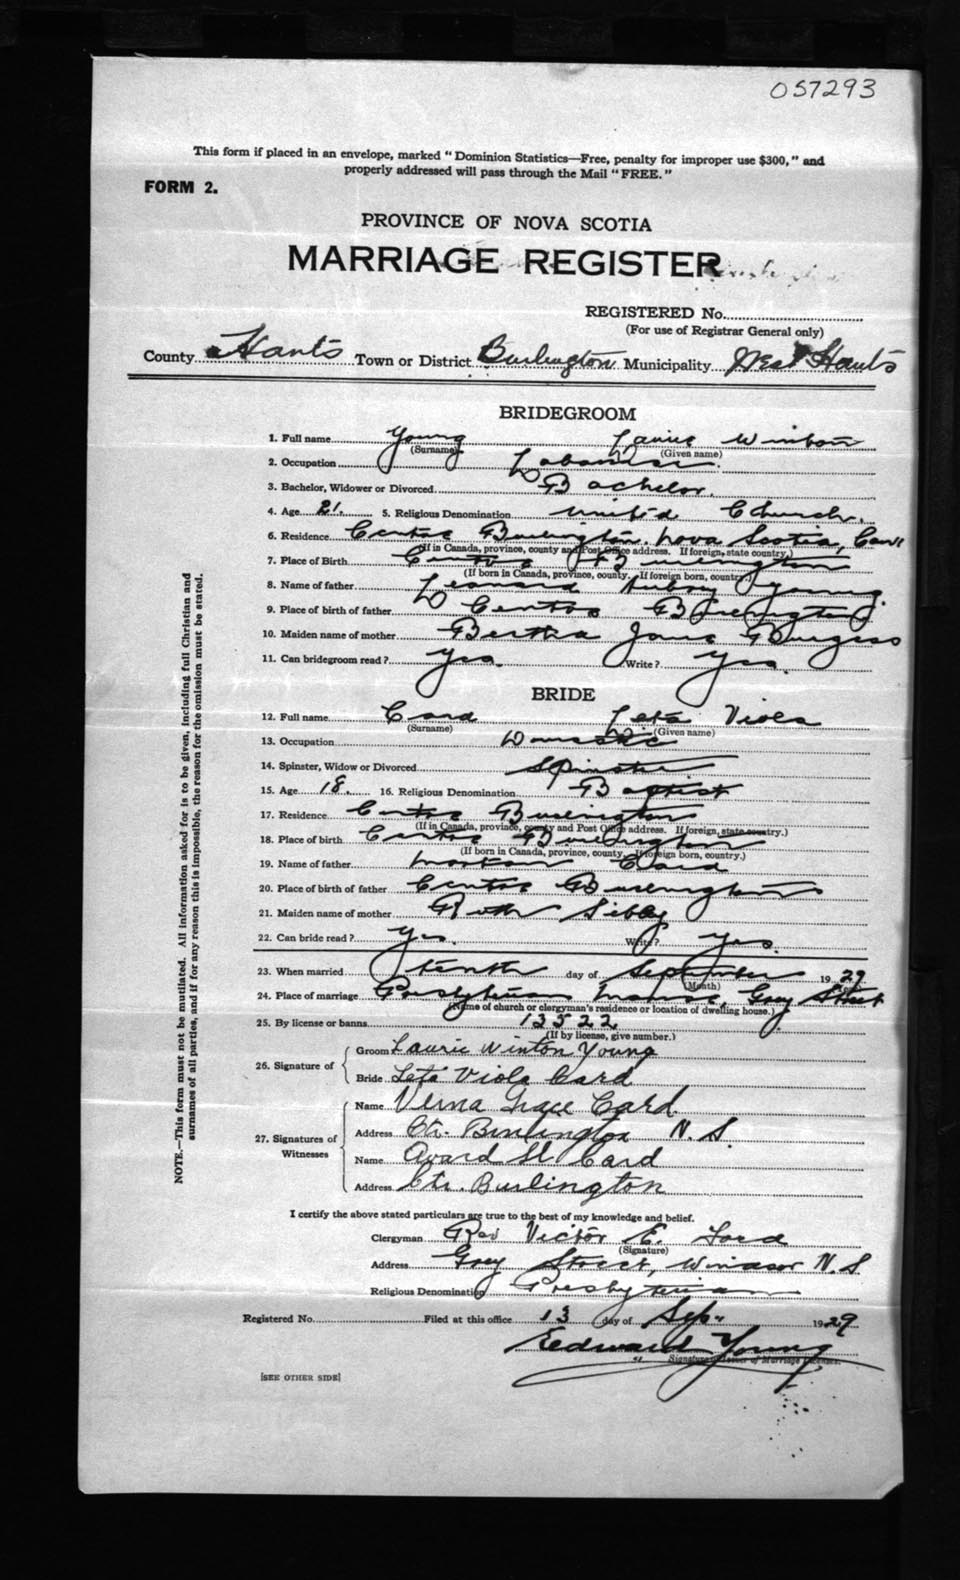 057293
This form if placed in an envelope, marked "Dominion Statistics—Free, penalty for improper use $300," and
properly addressed will pass through the Mail "FREE."
FORM 2.
PROVINCE OF NOVA SCOTIA
MARRIAGE REGISTER
REGISTERED No.
(For use of Registrar General only)
County Hants Town or District Burlington Municipality West Hants
BRIDEGROOM
1. Full name Young Laurie Winton
(Surname) (Given name)
2. Occupation Labourer
3. Bachelor, Widower or Divorced Bachelor.
4. Age 21. 5. Religious Denomination United Church.
6. Residence Centre Burlington. Nova Scotia, Can
(If in Canada, province, county and Post Office address. If foreign, state country.)
7. Place of Birth Centre Burlington
(If born in Canada, province, county. If foreign born, country.)
8. Name of father Leonard Young.
9. Place of birth of father Centre Burlington
10. Maiden name of mother Bertha Jane Burgess
11. Can bridegroom read? Yes. Write? Yes.
BRIDE
12. Full name Card Leta Viola
(Surname) (Given name)
13. Occupation Domestic
14. Spinster, Widow or Divorced Spinster
15. Age 18. 16. Religious Denomination Baptist
17. Residence Centre Burlington
(If in Canada, province, county and Post Office address. If foreign, state country.)
18. Place of birth Centre Burlington
(If born in Canada, province, county. If foreign born, country.)
19. Name of father Card
20. Place of birth of father Centre Burlington
21. Maiden name of mother Ruth Sibley
22. Can bride read? Yes. Write? Yes.
23. When married tenth day of September 1929
(Month)
24. Place of marriage Presbyterian Manse, Grey Street
(Name of church or clergyman's residence or location of dwelling house.)
25. By license or banns 13522
(If by license, give number.)
26. Signature of
Groom Laurie Winton Young
Bride Leta Viola Card
27. Signatures of Witnesses
Name Verna Grace Card.
Address Ctr. Burlington N. S.
Name Avard St. Card
Address Ctr. Burlington
I certify the above stated particulars are true to the best of my knowledge and belief.
Clergyman Rev Victor E. Ford
(Signature)
Address Grey Street, Windsor N.S
Religious Denomination Presbyterian
Registered No. Filed at this office 13 day of Sep. 1929
Edward Young
Signature of Issuer of Marriage Licenses.
[SEE OTHER SIDE]
NOTE.—This form must not be mutilated. All information asked for is to be given, including full Christian and
surnames of all parties, and if for any reason this is impossible, the reason for the omission must be stated.